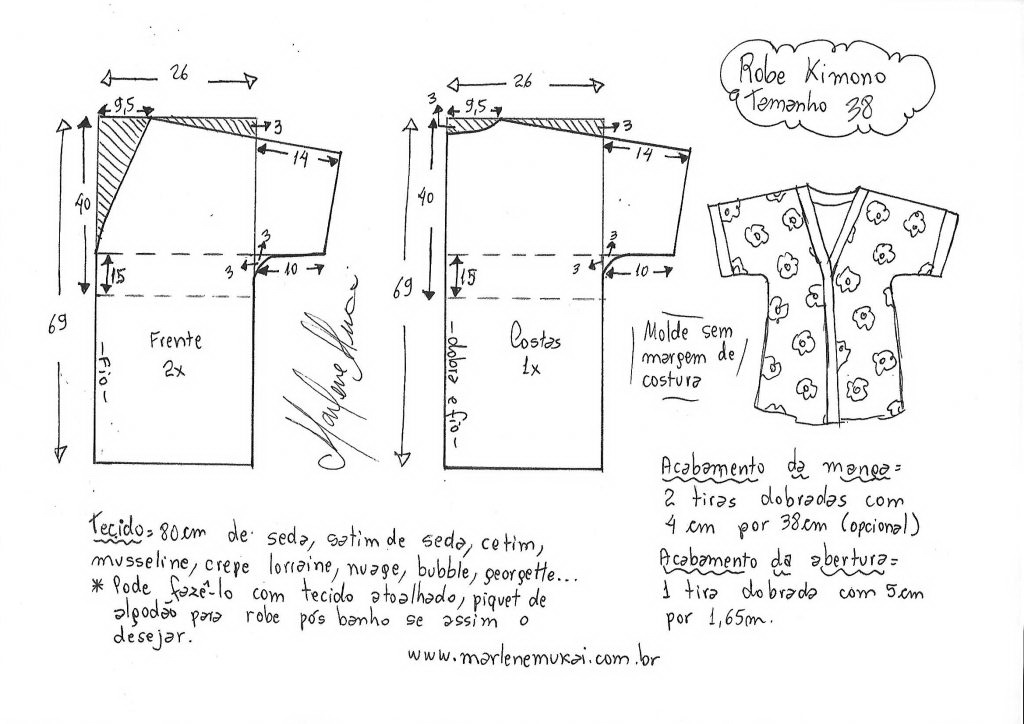 Robe Kimono
Tamanho 38
26
9,5
3
14
40
3
3
10
15
69
Frente
2x
-Fio-
Marlene Mukai
26
3
9,5
3
14
40
3
3
10
15
69
Costas
1x
-dobra e fio-
Molde sem
margem de
costura
Tecido= 80cm de seda, satim de seda, cetim,
musseline, crepe lorraine, nuage, bubble, georgette...
* Pode fazê-lo com tecido atoalhado, piquet de
algodão para robe pós banho se assim o
desejar.
Acabamento da manga=
2 tiras dobradas com
4 cm por 38cm (opcional)
Acabamento da abertura=
1 tira dobrada com 5cm
por 1,65m.
www.marlenemukai.com.br